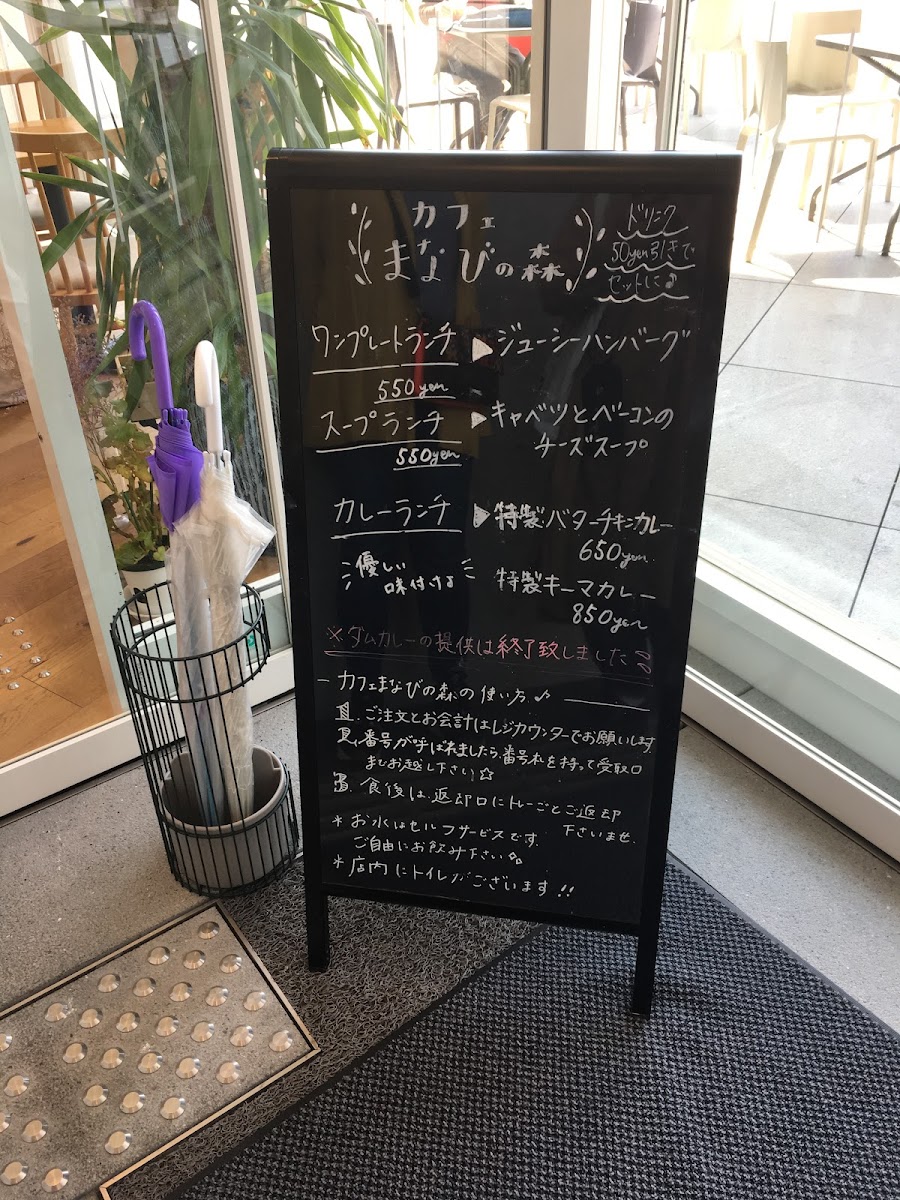 カフェ
まなびの森
ドリンク
50yen引きで
セットに♪
ワンプレートランチ ▶ ジューシーハンバーグ
550yen
スープランチ ▶ キャベツとベーコンの
チーズスープ
550yen
カレーランチ ▶ 特製バターチキンカレー
650yen
優しい
味付け
特製キーマカレー
850yen
※ダムカレーの提供は終了致しました
カフェまなびの森の使い方♪
1. ご注文とお会計はレジカウンターでお願いします
2. 番号が呼ばれましたら、番号札を持って受取口
までお越し下さい☆
3. 食後は、返却口にトレーごとご返却
下さいませ。
*お水はセルフサービスです。
ご自由にお飲み下さい
*店内にトイレがございます!!